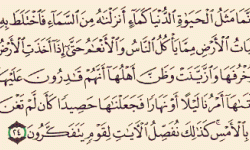 إِنَّمَا مَثَلُ ٱلْحَيَوٰةِ ٱلدُّنْيَا كَمَآءٍ أَنزَلْنَٰهُ مِنَ ٱلسَّمَآءِ فَٱخْتَلَطَ بِهِۦ
نَبَاتُ ٱلْأَرْضِ مِمَّا يَأْكُلُ ٱلنَّاسُ وَٱلْأَنْعَٰمُ حَتَّىٰٓ إِذَآ أَخَذَتِ ٱلْأَرْضُ
زُخْرُفَهَا وَٱزَّيَّنَتْ وَظَنَّ أَهْلُهَآ أَنَّهُمْ قَٰدِرُونَ عَلَيْهَآ
أَتَىٰهَآ أَمْرُنَا لَيْلًا أَوْ نَهَارًا فَجَعَلْنَٰهَا حَصِيدًا كَأَن لَّمْ تَغْنَ
بِٱلْأَمْسِ كَذَٰلِكَ نُفَصِّلُ ٱلْءَايَٰتِ لِقَوْمٍ يَتَفَكَّرُونَ ٢٤